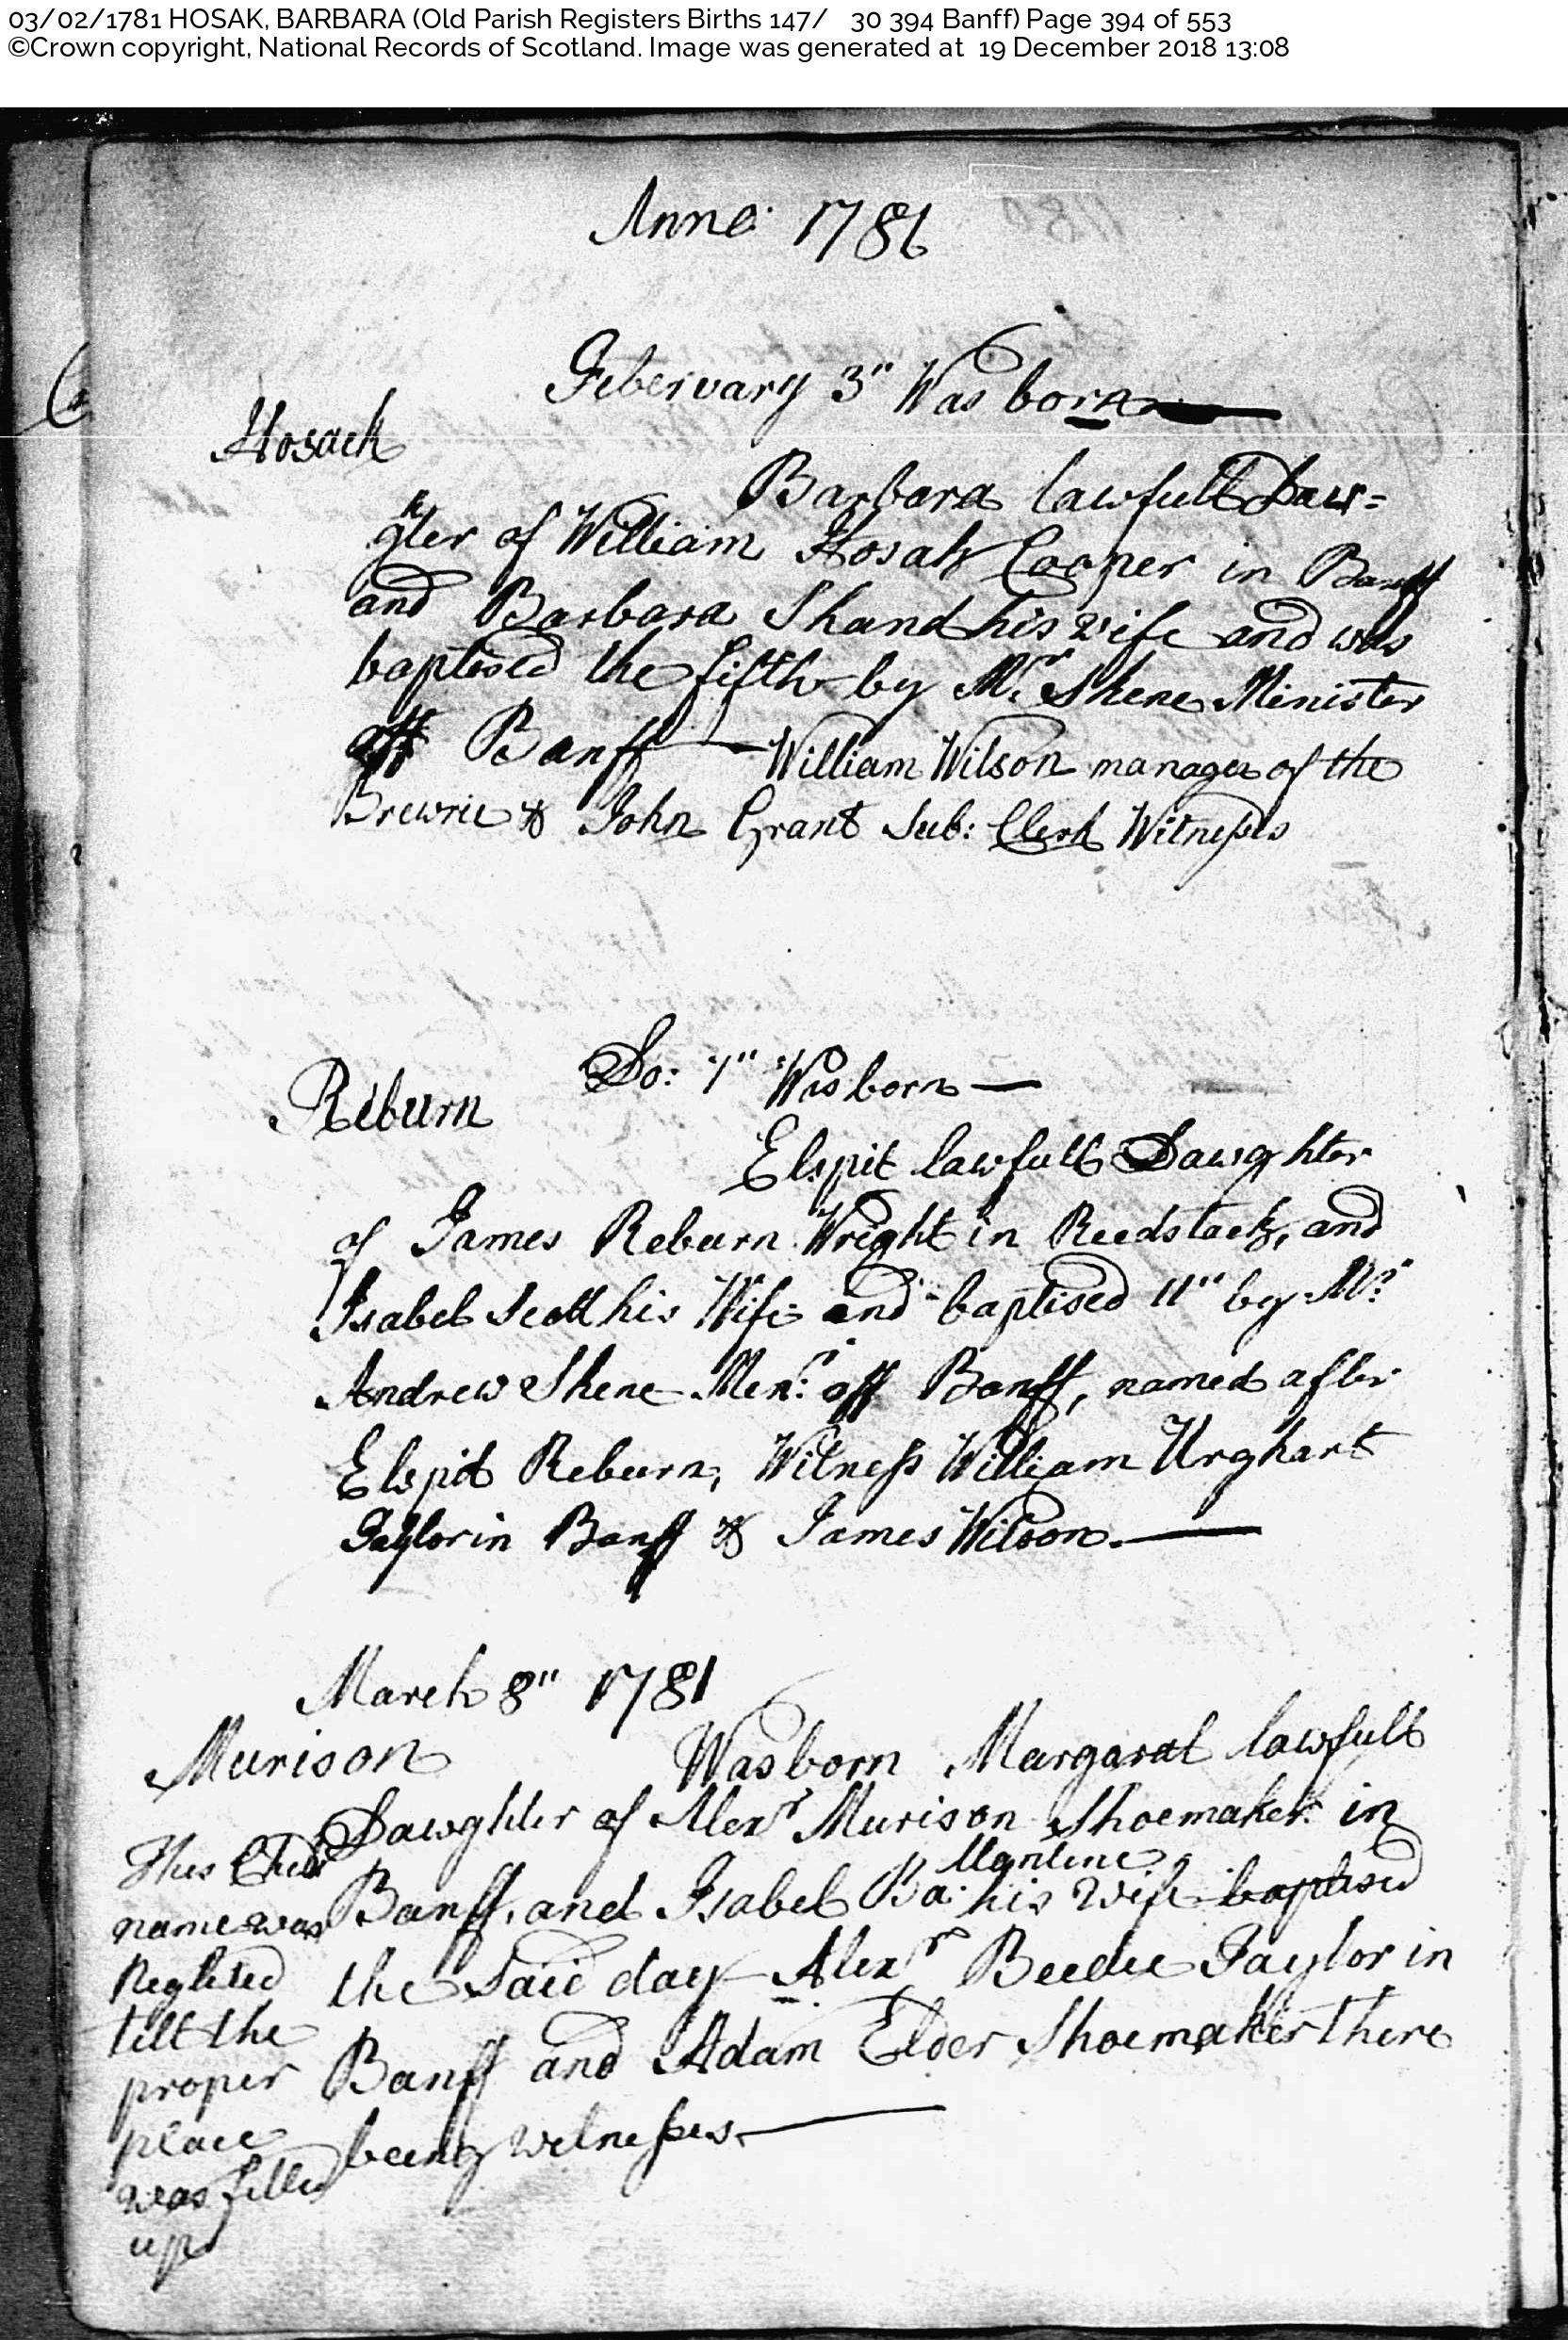 03/02/1781 HOSAK, BARBARA (Old Parish Registers Births 147/ 30 394 Banff) Page 394 of 553
©Crown copyright, National Records of Scotland. Image was generated at 19 December 2018 13:08
Anno 1781
Feberuary 3" Was born
Hosack
Barbara lawfull Daw=
ghter of William Hosak Cooper in Banff
and Barbara Shand his wife and was
baptised the fifth by Mr. Shene Minister
off Banff William Wilson manager of the
Brewrie & John Grant Sub: Clerk Witnesses
Do: 7" Was born
Reburn
Elspit lawfull Dawghter
of James Reburn Wright in Reedstack, and
Isabel Scott his Wife and baptised 11" by Mr.
Andrew Shene Menr. off Banff, named after
Elspit Reburn, Witness William Urghart
Taylor in Banff & James Wilson.
March 8" 1781
Murison
Was born Margarat lawfull
Dawghter of Alexr Murison Shoemaker in
Banff, and Isabel Ba: his Wife baptised
the Said day Alexr Beedie Taylor in
Banff and Adam Elder Shoemaker there
being witnesses
This Child
name was
Neglited
till the
proper
place
was filled
up